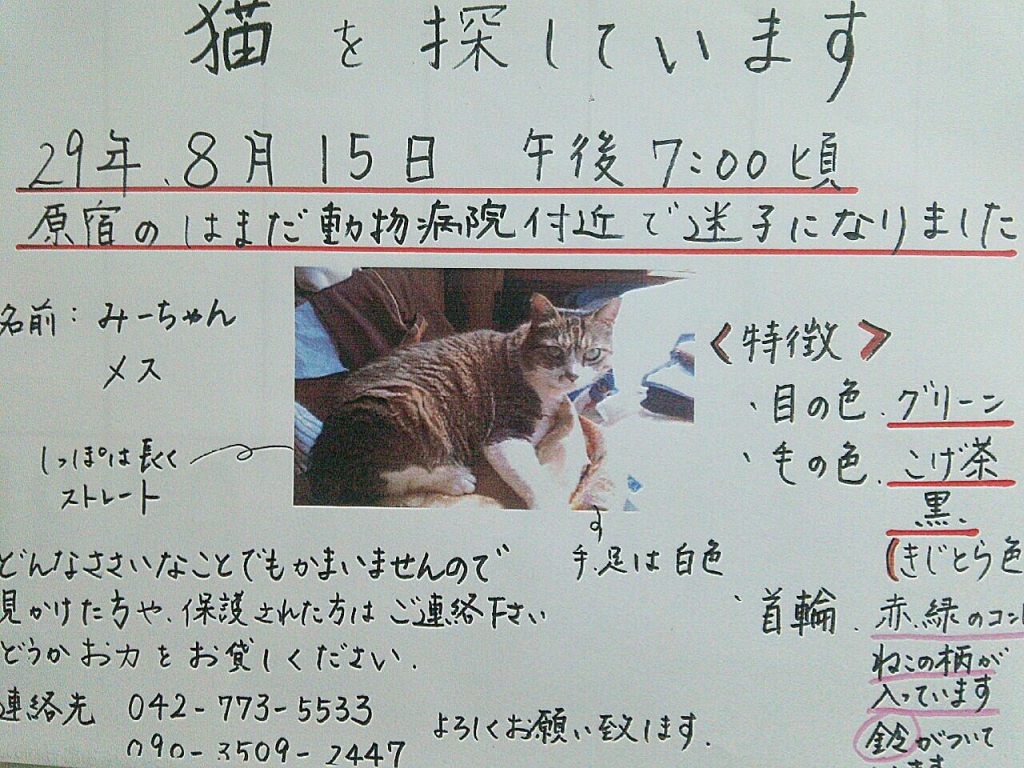 猫を探しています
29年、8月15日 午後7:00頃
原宿のはまだ動物病院付近で迷子になりました
名前: みーちゃん
メス
しっぽは長く
ストレート
<特徴>
・目の色、グリーン
・毛の色、こげ茶
黒、
(きじとら色
手、足は白色
・首輪、赤、緑のコン
ねこの柄が
入っています
鈴がついて
います
どんなささいなことでもかまいませんので
見かけた方や、保護された方はご連絡下さい
どうかお力をお貸しください.
連絡先 042-773-5533
090-3509-2447
よろしくお願い致します.